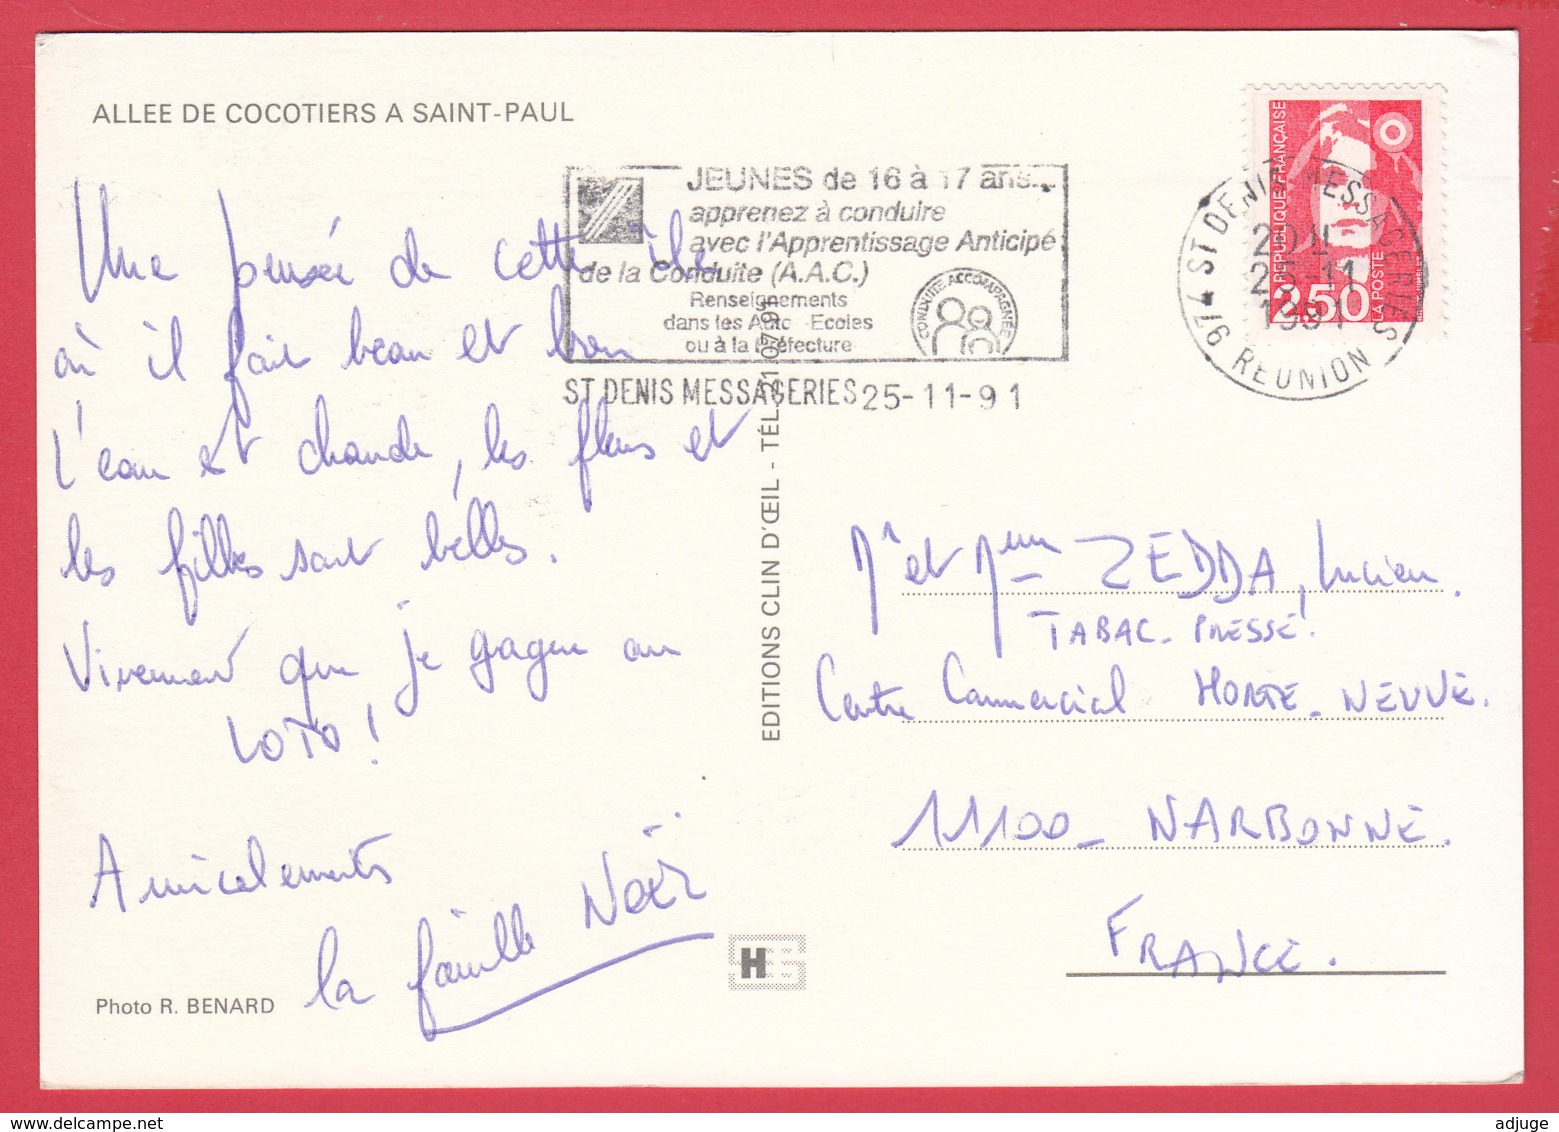 ALLEE DE COCOTIERS A SAINT-PAUL
JEUNES de 16 à 17 ans...
apprenez à conduire
avec l'Apprentissage Anticipé
de la Conduite (A.A.C.)
Renseignements
dans les Auto-Ecoles
ou à la Préfecture
CONDUITE ACCOMPAGNÉE
ST DENIS MESSAGERIES 25-11-91
REPUBLIQUE FRANÇAISE
2,50 LA POSTE
ST DENIS MESSAGERIES
25-11
1991
974 REUNION
Une pensée de cette île
où il fait beau et bon
L'eau est chaude, les fleurs et
les filles sont belles.
Vivement que je gagne au
LOTO !
Amicalements
la famille NOËL
Photo R. BENARD
EDITIONS CLIN D'ŒIL - TÉL.
Mr et Mme ZEDDA, Lucien.
TABAC - PRESSE.
Centre Commercial HORTE-NEUVE.
11100 - NARBONNE.
FRANCE.